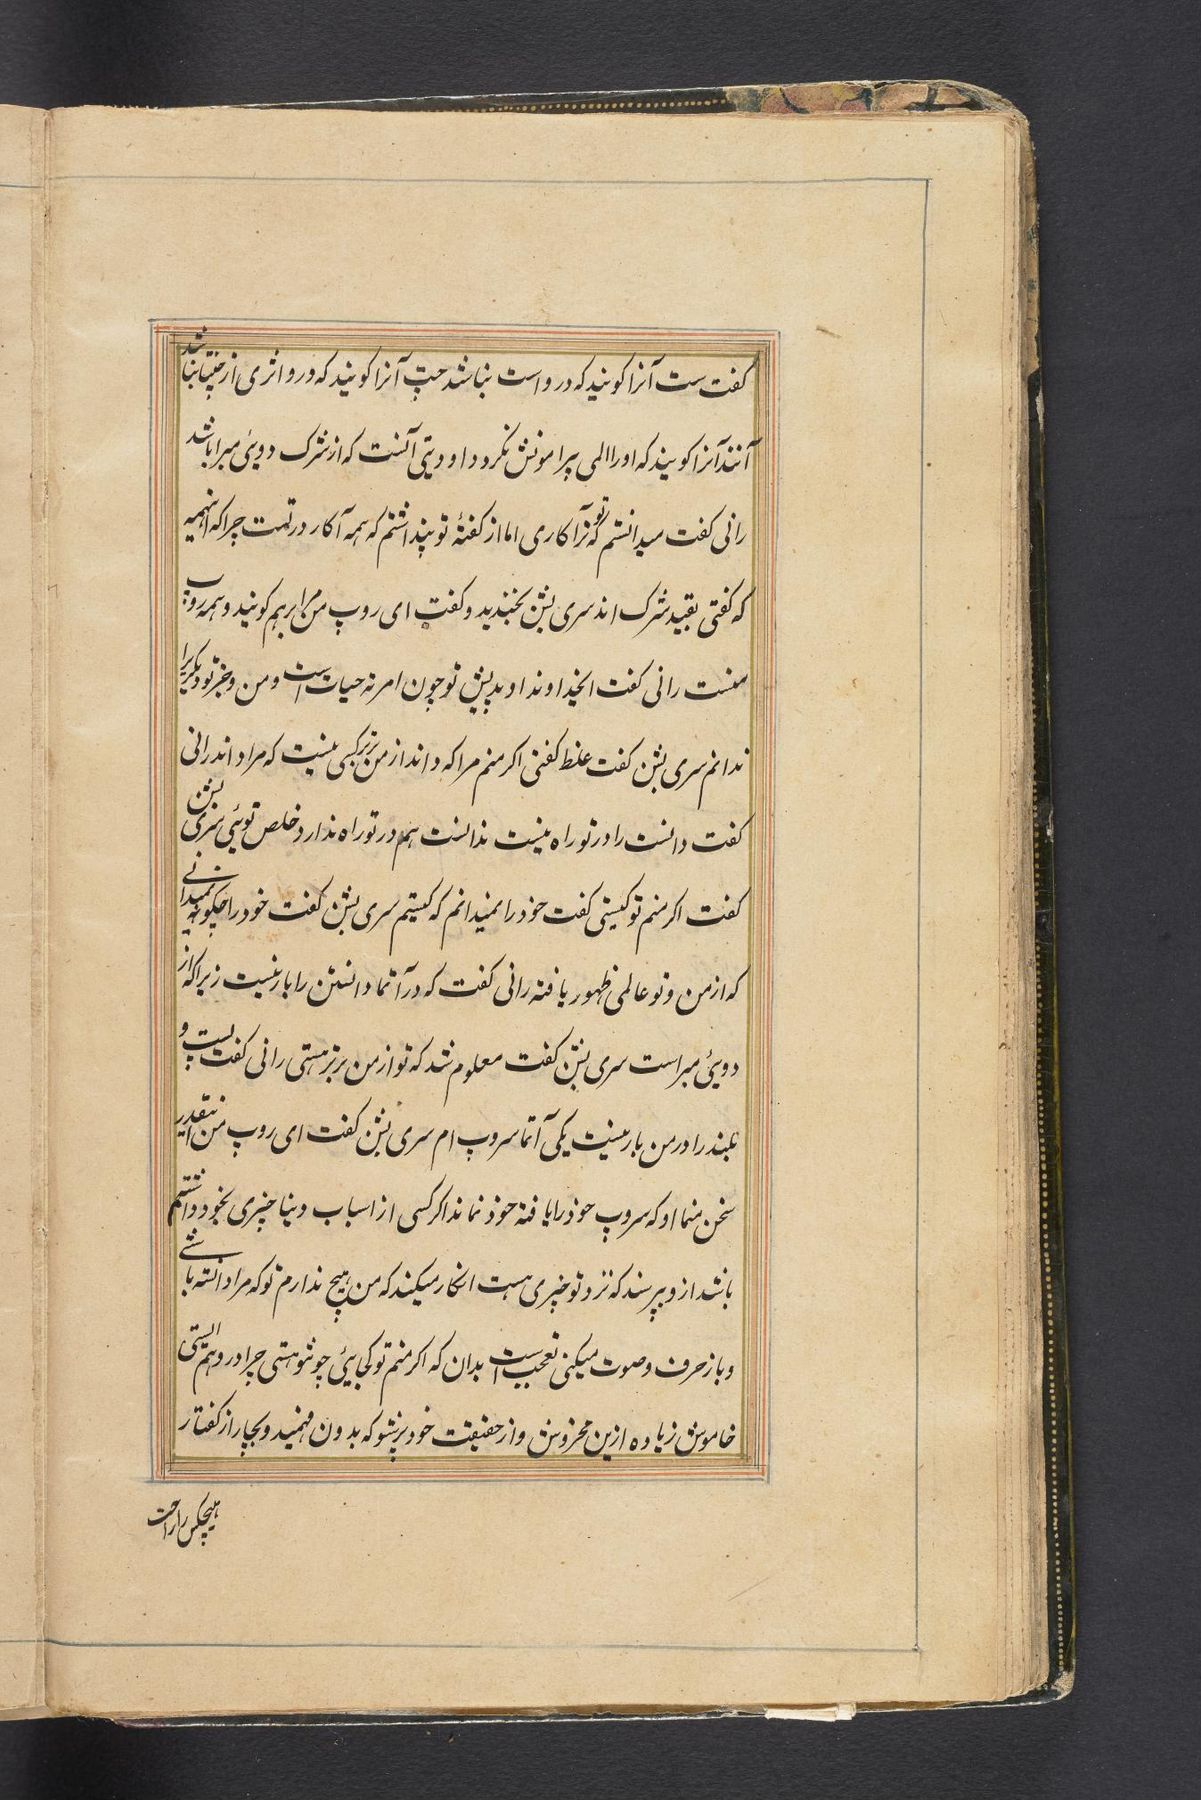 کفت ست آنرا کویند که در و است نباشد چت آنرا کویند که در و اثری از جنبا نباشد
آنند آنرا کویند که او را المی پیرامونش نکردد ادویتی آنست که از شرک دویٔی مبرا باشد
رانی کفت میدانستم که تو نرآکاری اما از کفتهٔ تو پنداشتم که همه آکار در تست چرا که اینهمه
که کفتی بقید شرک اند سری بشن بخندید و کفت ای روپ من مرا برهم کویند و همه روپ
منست رانی کفت ایخداوند اوید پیش تو چون امرته حیات است و من و جز تو دیکریرا
ندانم سری بشن کفت غلط کفتی اکر منم مرا که داند از من برتر کسی نیست که مرا داند رانی
کفت دانست را در تو راه نیست ندانست هم در تو راه ندارد خلص تویٔی سری بشن
کفت اکر منم تو کیستی کفت خود را نمیدانم که کیستم سری بشن کفت خود را چکونه نمیدانی
که از من و تو عالمی ظهور یافته رانی کفت که در آتما دانستن را بار نیست زیرا که از
دویٔی مبراست سری بشن کفت معلوم شد که تو از من برتر هستی رانی کفت پست و
بلند را در من بار نیست یکی آتما سروپ ام سری بشن کفت ای روپ من اینقدر
سخن منما او که سروپ خود را یافته خود نماند اکر کسی از اسباب دنیا چیزی بخود داشته
باشد از و بپرسند که نزد تو چیزی هست انکار میکند که من هیچ ندارم تو که مرا دانسته باشی
و باز حرف و صوت میکنی تعجب است بدان که اکر منم تو کجایٔی چو تو هستی چرا در وهم ایستی
خاموش زیاده ازین مخروش و از حقیقت خود بر شو که بدون فهمید و بچار از کفتار
هیچکس را راحت